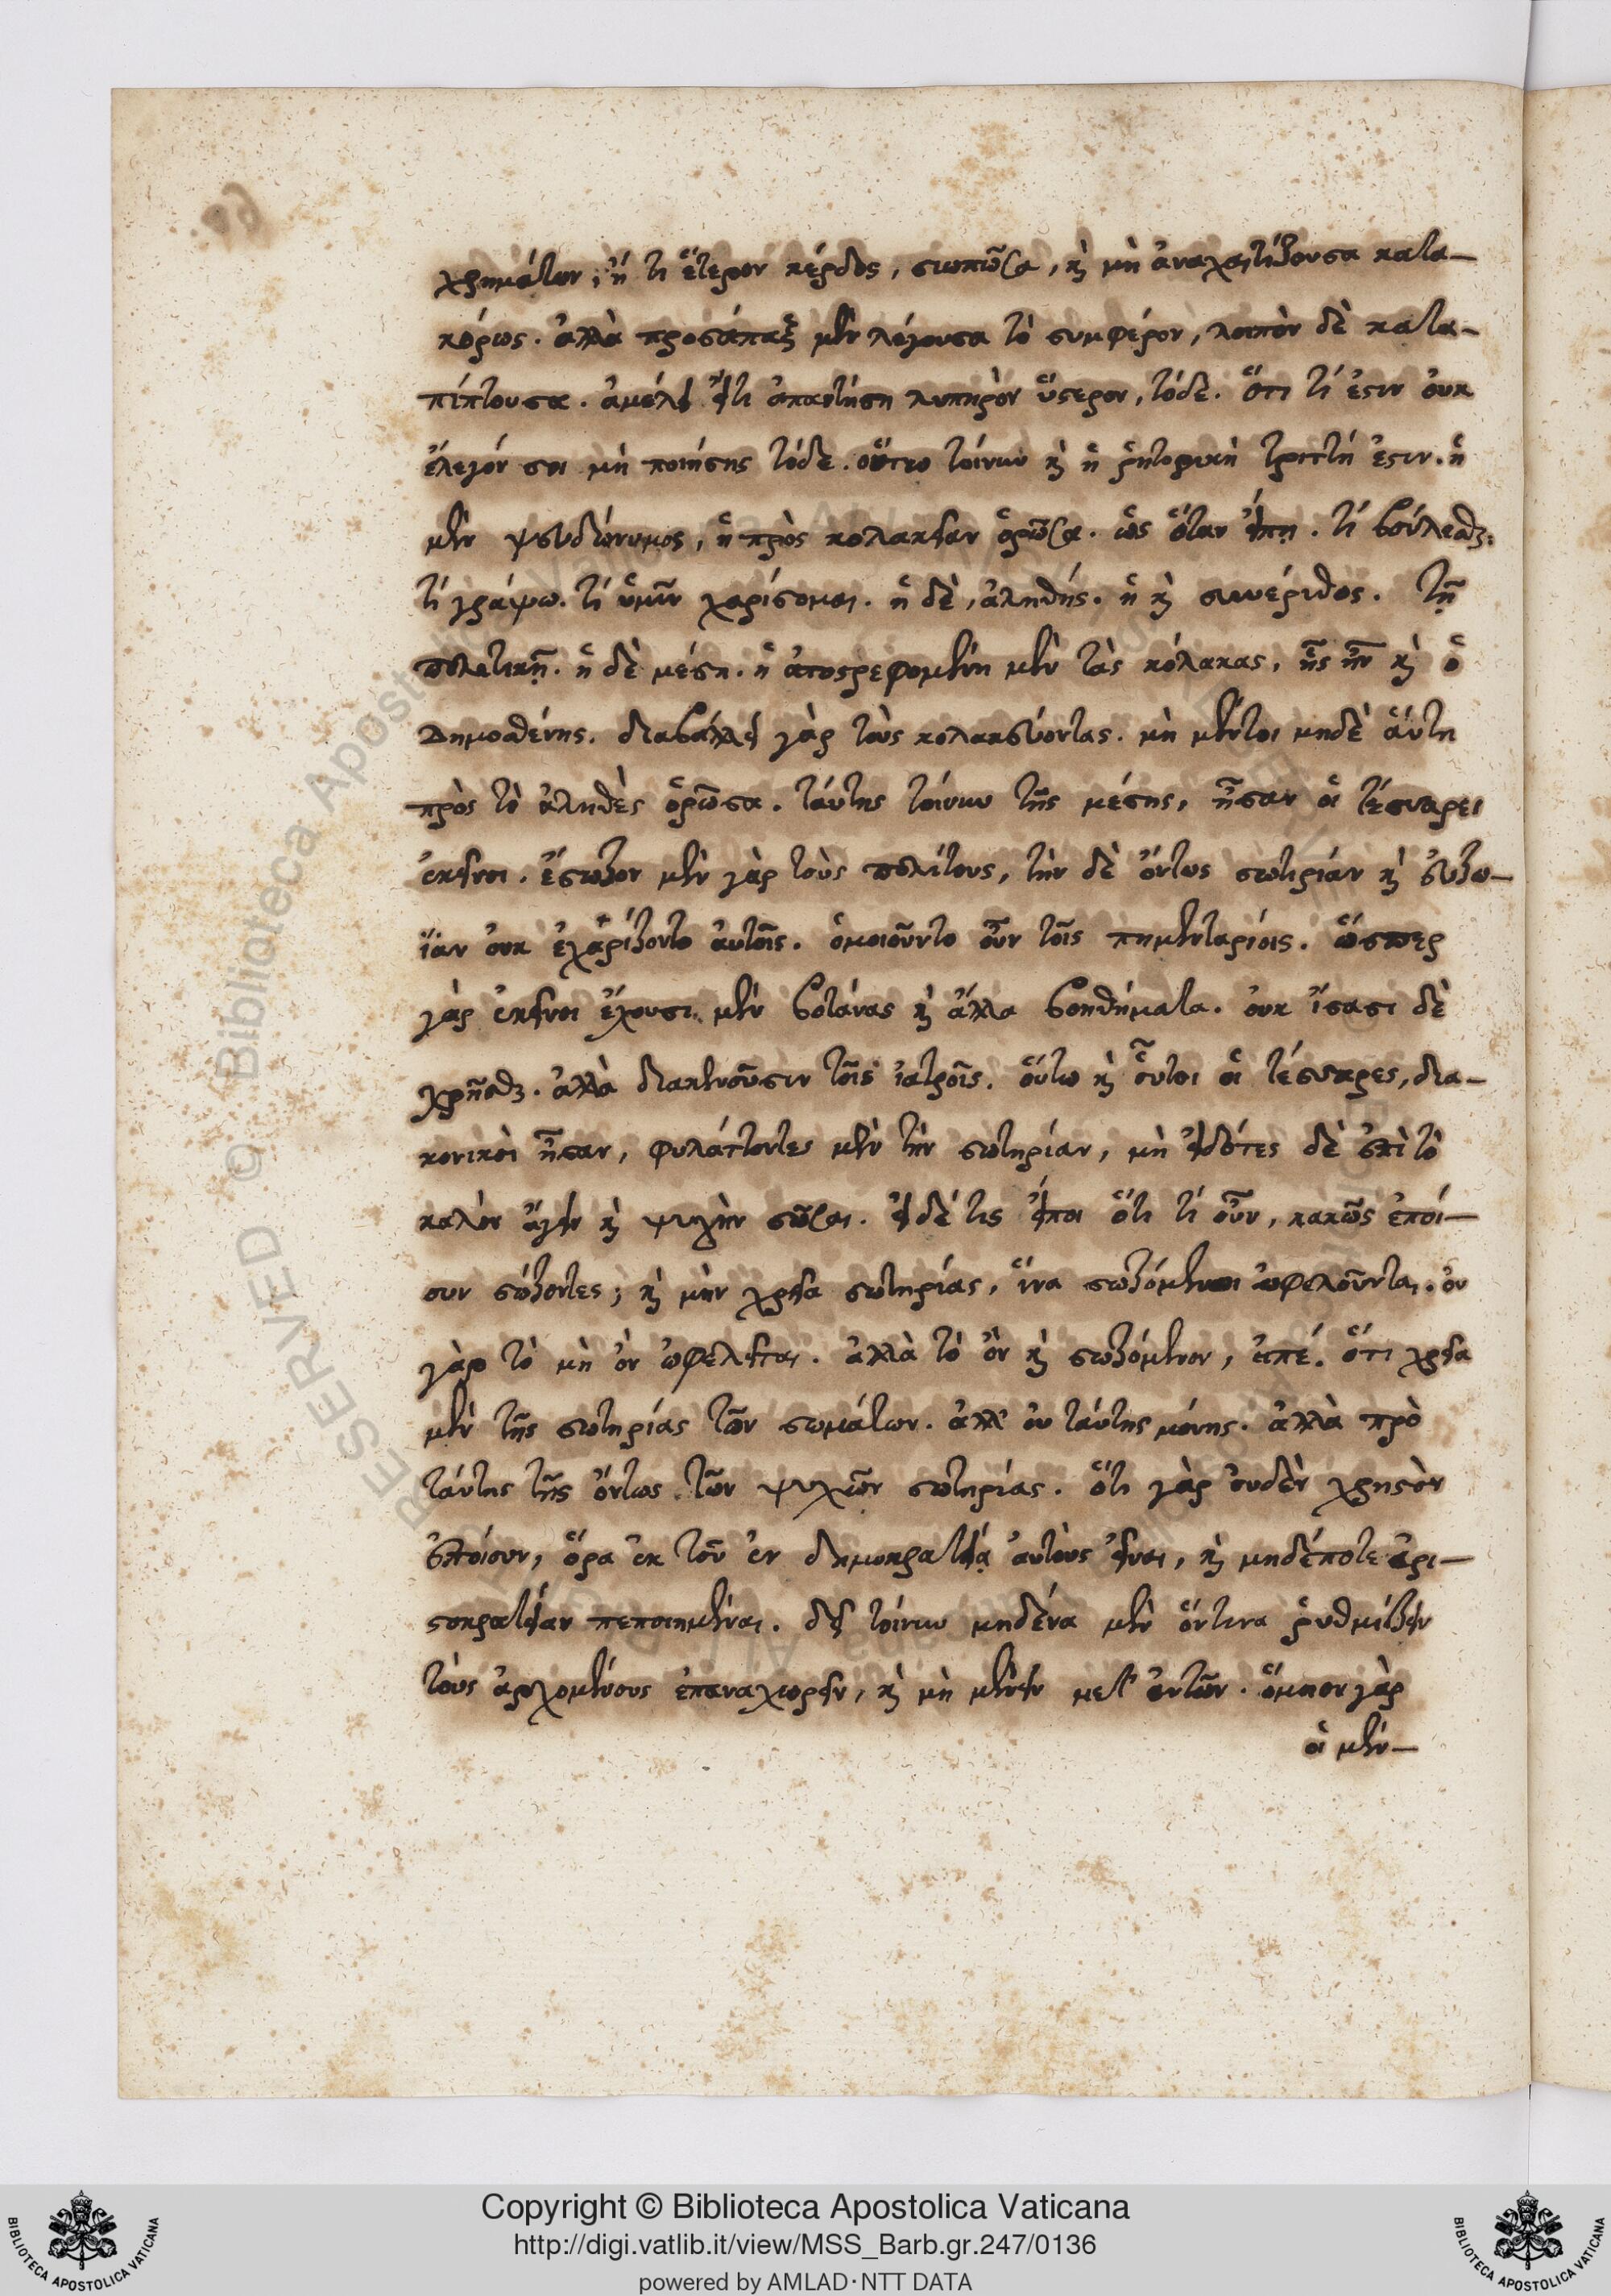 χρημάτων, ἤ τι ἕτερον κέρδος, σιωπῶσα, καὶ μὴ ἀναχαιτίζουσα κατα-
κόρως. ἀλλὰ προσάπαξ μὲν λέγουσα τὸ συμφέρον, λοιπὸν δὲ κατα-
πίπτουσα. ἀμέλει εἴ τι ἀπαντήση λυπηρὸν ὕστερον, τόδε. ὅτι τί ἐστιν οὐκ
ἔλεγόν σοι μὴ ποιήσης τόδε. οὕτω τοίνυν καὶ ἡ ῥητορικὴ τριττή ἐστιν. ἡ
μὲν ψευδώνυμος, ἡ πρὸς κολακείαν ὁρῶσα. ὡς ὅταν εἴπῃ. τί βούλεσθε;
τί γράψω. τί ὑμῖν χαρίσομαι. ἡ δὲ, ἀληθής. ἡ καὶ συνέριθος. τῇ
πολιτικῇ. ἡ δὲ μέση. ἡ ἀποστρεφομένη μὲν τὰς κόλακας, ἧς ἦν καὶ ὁ
Δημοσθένης. διαβάλλει γὰρ τοὺς κολακεύοντας. μὴ μέντοι μηδὲ αὕτη
πρὸς τὸ ἀληθὲς ὁρῶσα. ταύτης τοίνυν τῆς μέσης, ἦσαν οἱ τέσσαρει
ἐκεῖνοι. ἔσωζον μὲν γὰρ τοὺς πολίτους, τὴν δὲ ὄντως σωτηρίαν καὶ εὐζω-
ΐαν οὐκ ἐχαρίζοντο αὐτοῖς. ὁμοιοῦντο οὖν τοῖς πημενταρίοις. ὥσπερ
γὰρ ἐκεῖνοι ἔχουσι μὲν βοτάνας καὶ ἄλλα βοηθήματα. οὐκ ἴσασι δὲ
χρῆσθαι. ἀλλὰ διακονοῦσιν τοῖς ἰατροῖς. οὕτω καὶ οὗτοι οἱ τέσσαρες, δια-
κονικοὶ ἦσαν, φυλάττοντες μὲν τὴν σωτηρίαν, μὴ εἰδότες δὲ ἐπὶ τὸ
καλὸν ἄγειν καὶ ψυχὴν σῶσαι. εἰ δέ τις εἴποι ὅτι τί οὖν, κακῶς ἐποί-
ουν σώζοντες; καὶ μὴν χρεία σωτηρίας, ἵνα σωζόμενοι ὠφελοῦνται. οὐ
γὰρ τὸ μὴ ὂν ὠφελεῖται. ἀλλὰ τὸ ὂν καὶ σωζόμενον, εἰπέ. ὅτι χρεία
μὲν τῆς σωτηρίας τῶν σωμάτων. ἀλλ' οὐ ταύτης μόνης. ἀλλὰ πρὸ
ταύτης τῆς ὄντως τῶν ψυχῶν σωτηρίας. ὅτι γὰρ οὐδὲν χρηστὸν
ἐποίουν, ὅρα ἐκ τοῦ ἐν δημοκρατείᾳ αὐτοὺς εἶναι, καὶ μηδέποτε ἀρι-
στοκρατείαν πεποιημέναι. δεῖ τοίνυν μηδένα μὲν ὅντινα ῥυθμίζειν
τοὺς ἀρχομένους ἐπαναχωρεῖν, καὶ μὴ μένειν μετ' αὐτῶν. ὅμηον γὰρ
οἱ μὲν-